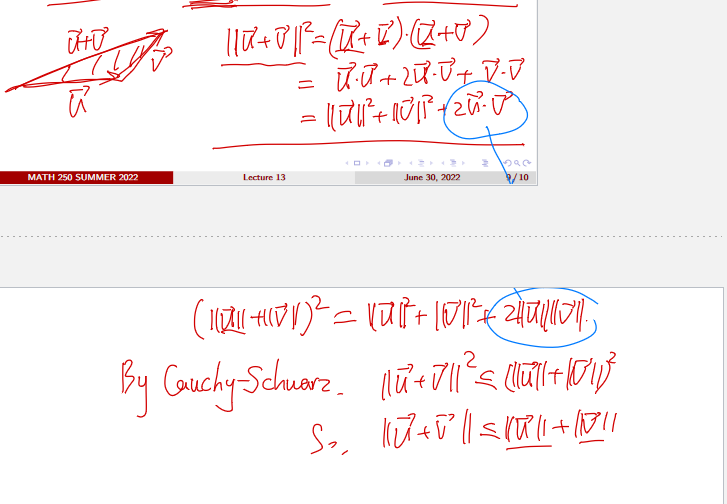 u⃗+v⃗
v⃗
u⃗
||u⃗+v⃗||²=(u⃗+v⃗)·(u⃗+v⃗)
= u⃗·u⃗+2u⃗·v⃗+v⃗·v⃗
= ||u⃗||²+||v⃗||²+2u⃗·v⃗
MATH 250 SUMMER 2022 Lecture 13 June 30, 2022 9 / 10
(||u⃗||+||v⃗||)² = ||u⃗||²+||v⃗||²+2||u⃗||||v⃗||.
By Cauchy-Schwarz. ||u⃗+v⃗||² ≤ (||u⃗||+||v⃗||)²
So, ||u⃗+v⃗|| ≤ ||u⃗||+||v⃗||